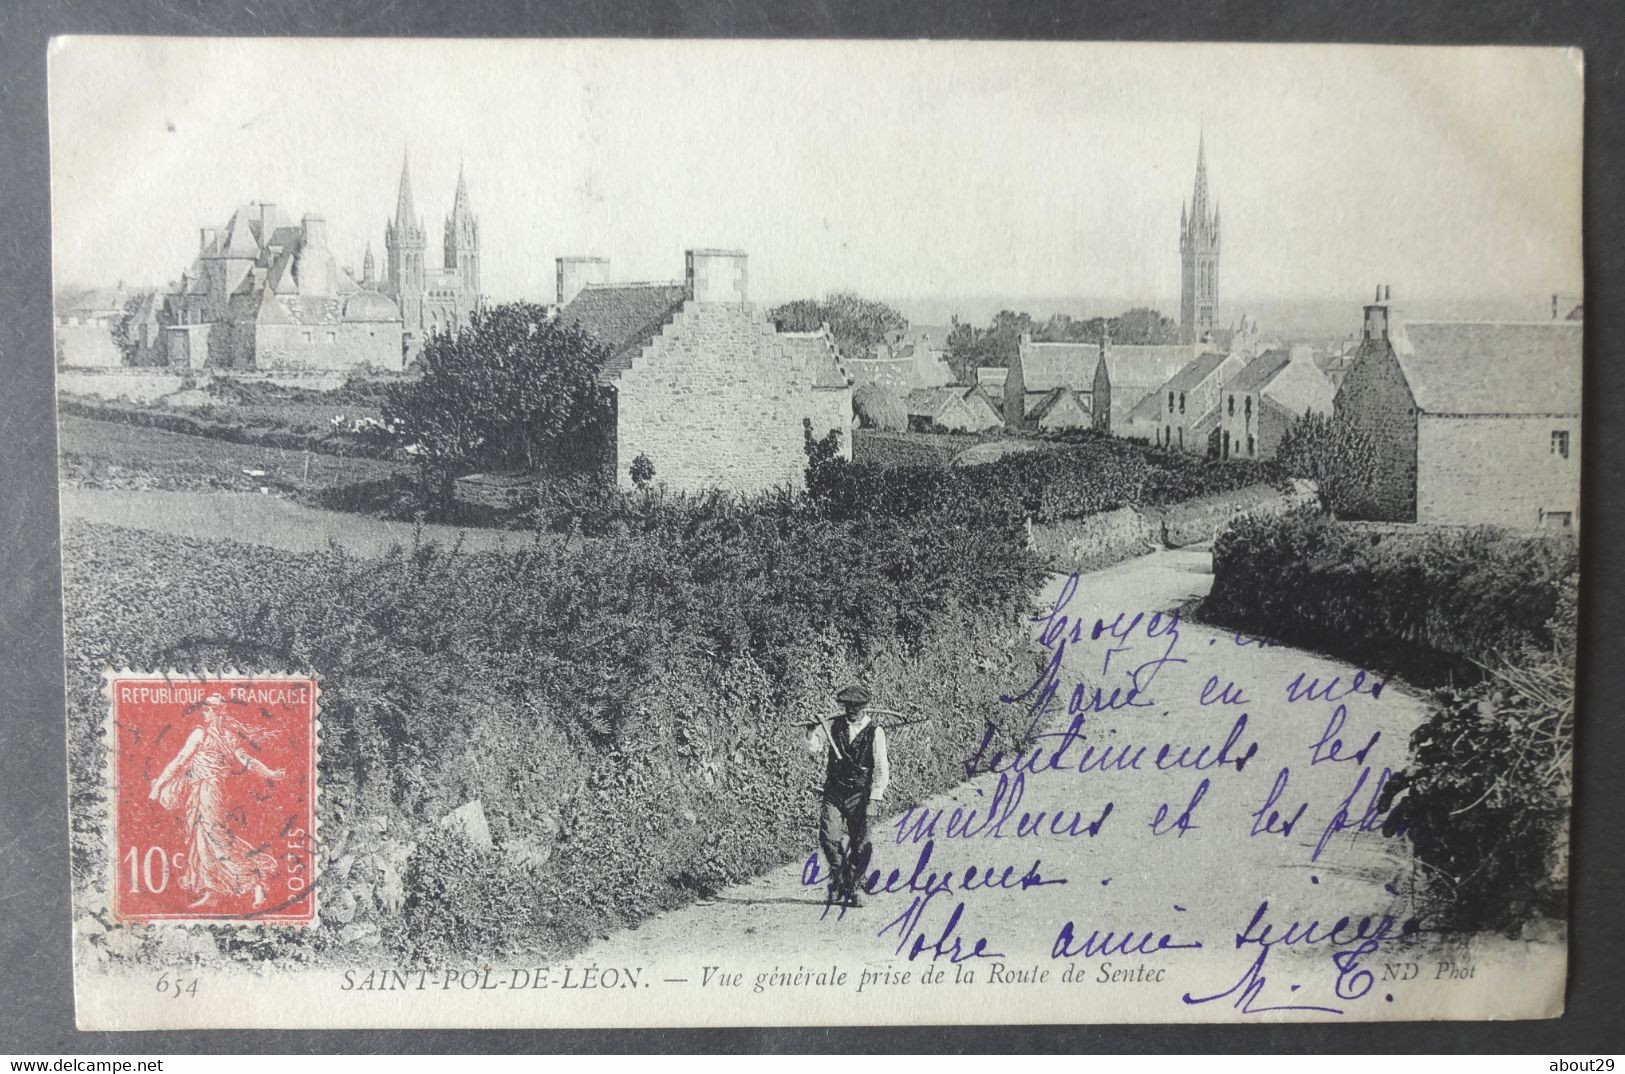 REPUBLIQUE FRANÇAISE
10c
POSTES
Croyez
Marie en mes
sentiments les
meilleurs et les
affectueux.
Votre amie sincère
M. T.
654
SAINT-POL-DE-LÉON. — Vue générale prise de la Route de Sentec
ND Phot
about29